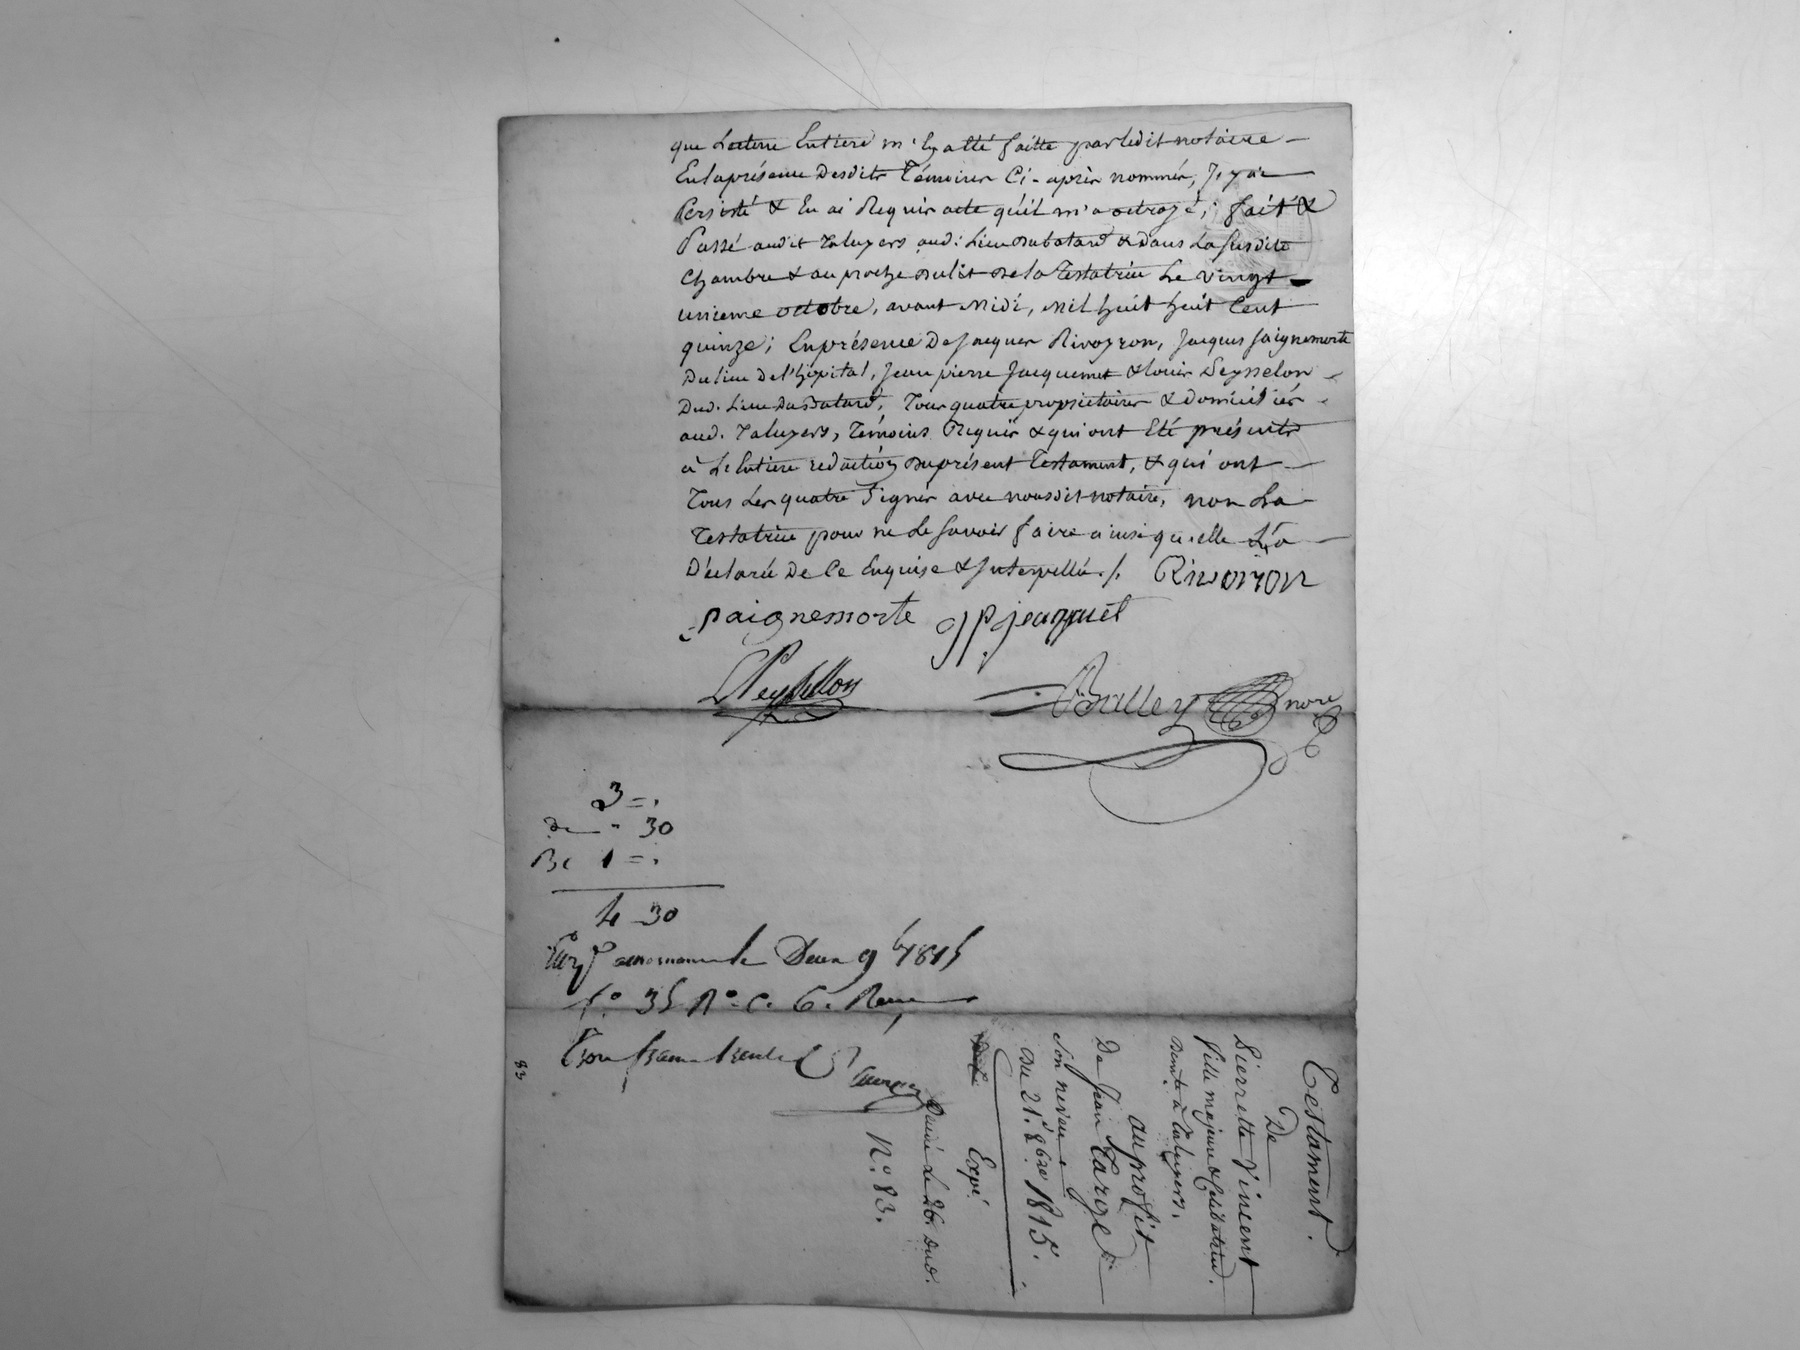 que Lecture Entiere m'en a été faitte par ledit notaire
En la présence desdits Témoins Ci-après nommés, J'y ai
Persisté & En ai Requis acte qu'il m'a octroyé; fait &
Passé audit Taluyers aud: Lieu du batard & dans La susdite
Chambre & au proche du lit de la Testatrice Le vingt
unieme octobre, avant Midi, Mil huit huit Cent
quinze; En présence De Jacques Rivoyron, Jacques Saignemorte
Du lieu De l'hôpital, Jean pierre Jacquemet & Louis Peysselon
Dud. Lieu Du Batard, Tous quatre propriétaires & domiciliés
aud. Taluyers, Témoins Requis & qui ont Eté présents
à L'Entiere rédaction du présent Testament, & qui ont
Tous Les quatre Signés avec nousdit notaire, non La
Testatrice pour ne Le Savoir faire ainsi qu'elle L'a
Déclaré De Ce Enquise & Interpellée ./. Rivoiron
Saignemorte JPJacquet
LPeyssellon
Brilley nore
3 = .
De - 30
1 = .
4 30
Enrg a mornant le Deux 9b 1815
f.o 35 Ro. C. 6. Reçu
Trois francs trente Cs
Testament.
De
Pierrette Vincent
fille majeure & Celibataire.
Demte à Taluyers.
au profit
De Jean Targe
Son neveu
Du 21. 8bre 1815.
Expé.
Délivré Le 26. dud.
N.o 83.
83